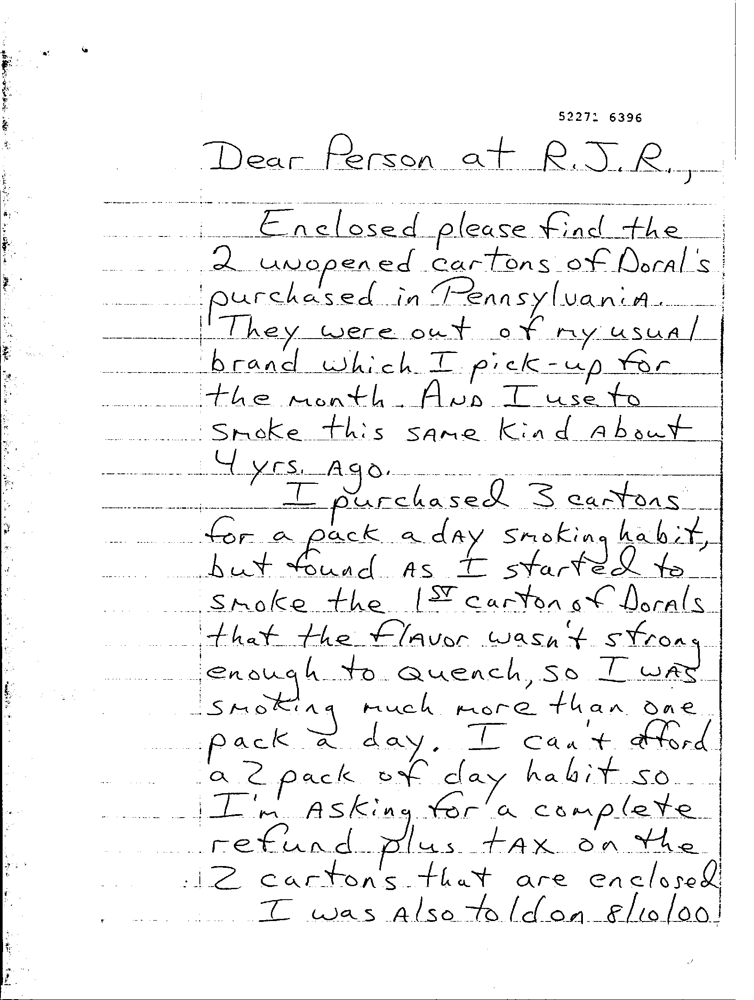 52271 6396
Dear Person at R.J.R.,
Enclosed please find the
2 unopened cartons of Doral's
purchased in Pennsylvania.
They were out of my usual
brand which I pick-up for
the month. And I use to
smoke this same kind about
4 yrs. ago.
I purchased 3 cartons
for a pack a day smoking habit,
but found as I started to
smoke the 1ST carton of Dorals
that the flavor wasn't strong
enough to quench, so I was
smoking much more than one
pack a day. I can't afford
a 2 pack of day habit so
I'm asking for a complete
refund plus tax on the
2 cartons that are enclosed
I was also told on 8/10/00